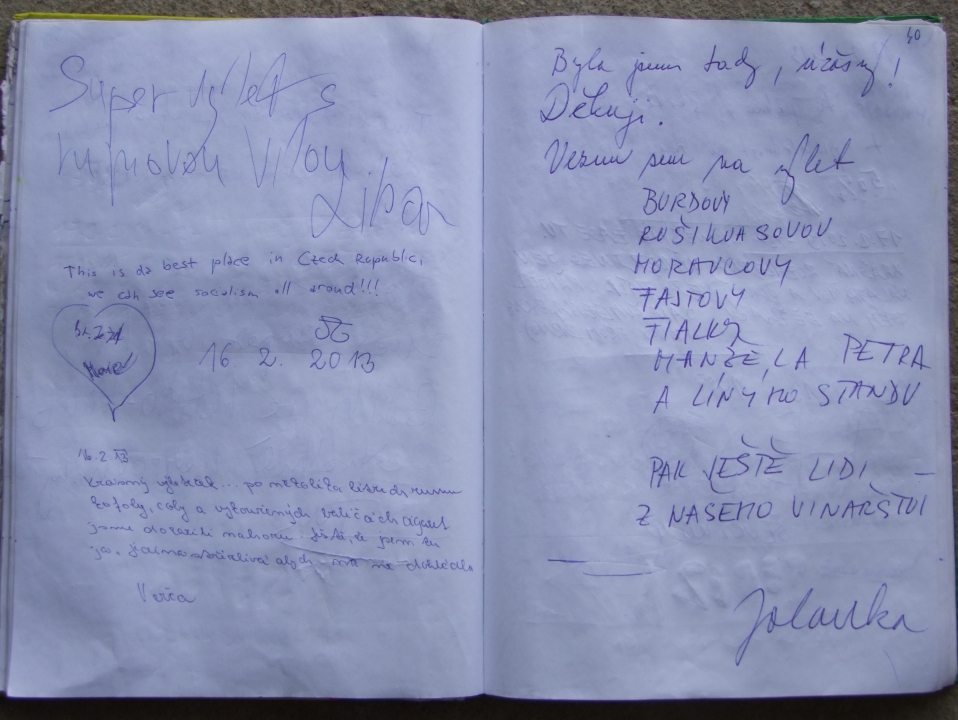 Super výlet s
rumovou Víťou
Libor
This is da best place in Czech Republic,
we can see socialism all around!!!
16 2. 2013
16.2 13
krásný výšlap... po několika litrech rumu
kofoly, coly a vykouřených cigaret
jsme dorazili nahoru. Ještě, že jsem tu
já,
Verča
40
Byla jsem tady, úžasný!
Děkuji.
Vezmu sem na výlet
BURDOVY
RUŠIKVASOVOU
MORAVCOVY
FAJTOVY
FIALKY
MANŽELA PETRA
A LÍNÝHO STANDU
PAK JEŠTĚ LIDI –
Z NAŠEHO VINAŘSTVÍ
Jolanka